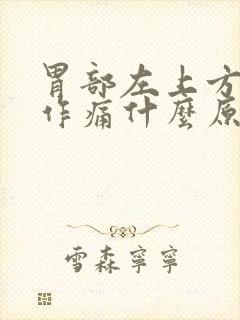 胃部左上方
作痛什麼原
雪森寧寧